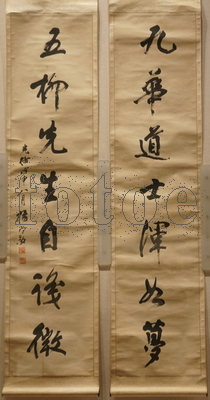 九華道士渾如夢
五柳先生自識微
fotoe